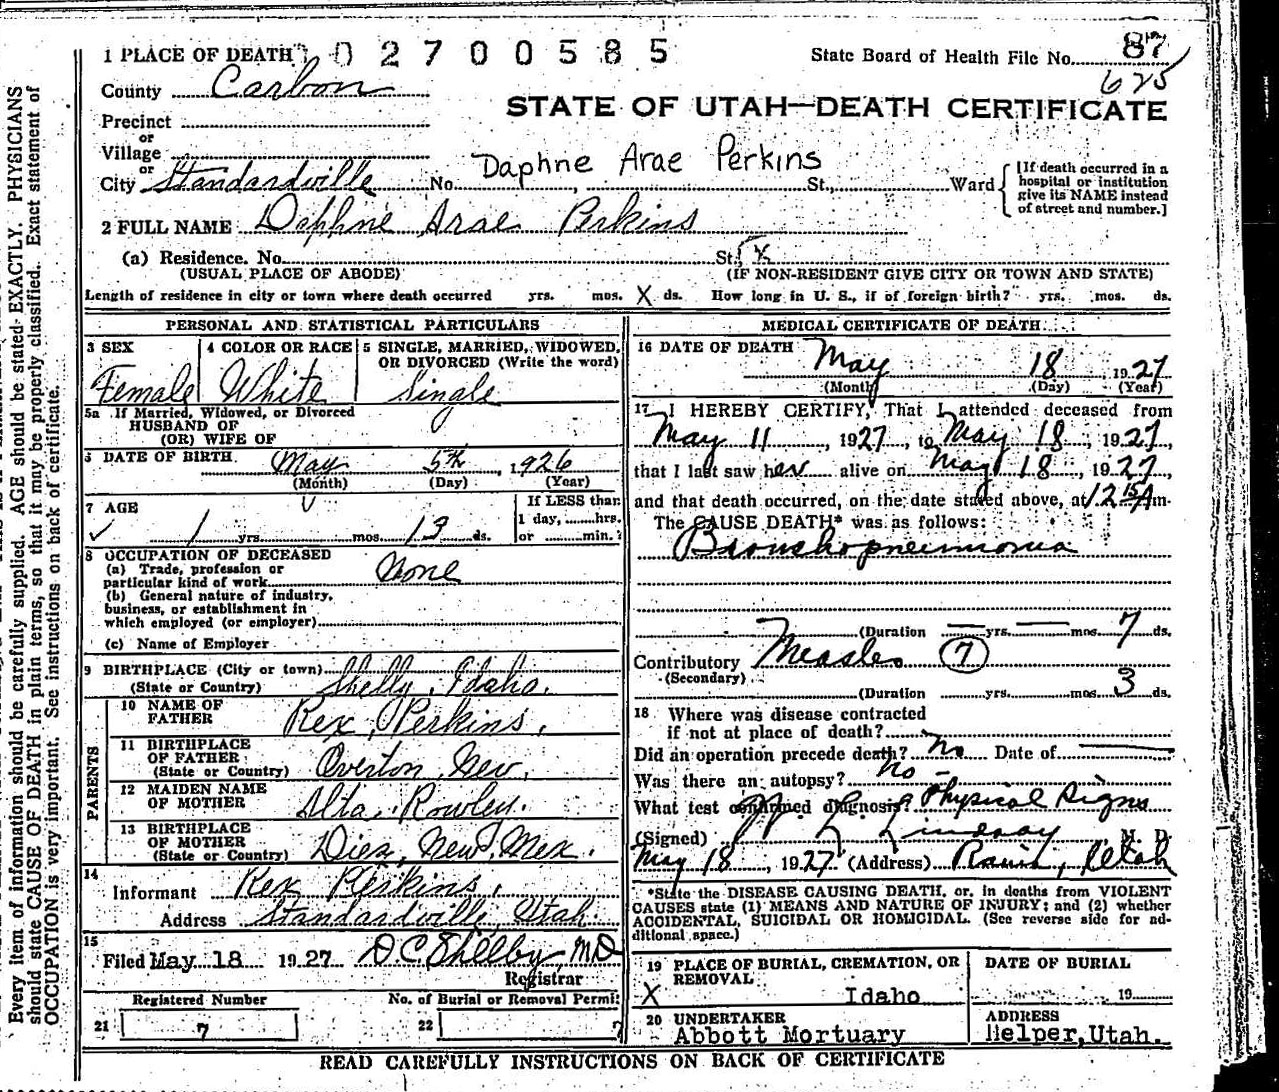 1 PLACE OF DEATH 0 2 7 0 0 5 8 5 State Board of Health File No. 87
625
County Carbon
STATE OF UTAH—DEATH CERTIFICATE
Precinct
or
Village
or
Daphne Arae Perkins
City Standardville No. St., Ward [If death occurred in a hospital or institution give its NAME instead of street and number.]
2 FULL NAME Daphne Arae Perkins
(a) Residence. No. St. X
(USUAL PLACE OF ABODE) (IF NON-RESIDENT GIVE CITY OR TOWN AND STATE)
Length of residence in city or town where death occurred yrs. mos. X ds. How long in U. S., if of foreign birth? yrs. mos. ds.
PERSONAL AND STATISTICAL PARTICULARS
3 SEX 4 COLOR OR RACE 5 SINGLE, MARRIED, WIDOWED,
OR DIVORCED (Write the word)
Female White Single
5a If Married, Widowed, or Divorced
HUSBAND OF
(OR) WIFE OF
6 DATE OF BIRTH May 5th, 1926
(Month) (Day) (Year)
7 AGE If LESS than
1 yrs. mos. 13 ds. 1 day, hrs.
or min.?
8 OCCUPATION OF DECEASED
(a) Trade, profession or
particular kind of work None
(b) General nature of industry,
business, or establishment in
which employed (or employer)
(c) Name of Employer
9 BIRTHPLACE (City or town) Shelly, Idaho.
(State or Country)
PARENTS
10 NAME OF
FATHER Rex Perkins,
11 BIRTHPLACE
OF FATHER
(State or Country) Overton, Nev,
12 MAIDEN NAME
OF MOTHER Alta, Rowley.
13 BIRTHPLACE
OF MOTHER
(State or Country) Diez, New Mex.
14
Informant Rex Perkins,
Address Standardville, Utah.
15
Filed May 18 1927 D C Shelby MD
Registrar
Registered Number No. of Burial or Removal Permit
21 7 22 7
MEDICAL CERTIFICATE OF DEATH
16 DATE OF DEATH
May 18 1927
(Month) (Day) (Year)
17 I HEREBY CERTIFY, That I attended deceased from
May 11, 1927, to May 18, 1927,
that I last saw her alive on May 18, 1927,
and that death occurred, on the date stated above, at 12 15 A m.
The CAUSE DEATH* was as follows:
Bronchopneumonia
(Duration yrs. mos. 7 ds.
Contributory Measles 7
(Secondary)
(Duration yrs. mos. 3 ds.
18 Where was disease contracted
if not at place of death?
Did an operation precede death? No Date of
Was there an autopsy? No -
What test confirmed diagnosis? Physical Signs
(Signed) Lindsay M. D.
May 18, 1927 (Address) Utah
*State the DISEASE CAUSING DEATH, or, in deaths from VIOLENT
CAUSES state (1) MEANS AND NATURE OF INJURY; and (2) whether
ACCIDENTAL, SUICIDAL OR HOMICIDAL. (See reverse side for ad-
ditional space.)
19 PLACE OF BURIAL, CREMATION, OR
REMOVAL
X Idaho
DATE OF BURIAL
19
20 UNDERTAKER
Abbott Mortuary
ADDRESS
Helper, Utah.
READ CAREFULLY INSTRUCTIONS ON BACK OF CERTIFICATE
Every item of information should be carefully supplied. AGE should be stated EXACTLY. PHYSICIANS
should state CAUSE OF DEATH in plain terms, so that it may be properly classified. Exact statement of
OCCUPATION is very important. See instructions on back of certificate.